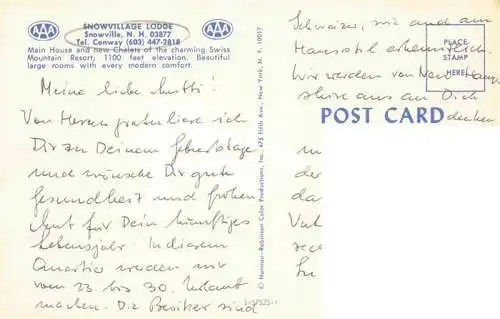 SNOWVILLAGE LODGE
Snowville, N. H. 03877
Tel. Conway (603) 447-2818
Main House and new Chalets of the charming Swiss
Mountain Resort; 1100 feet elevation. Beautiful
large rooms with every modern comfort.
AAA
AAA
Meine liebe Mutti!
Von Herzen gratuliere ich
Dir zu Deinem Geburtstage
und wünsche Dir gute
Gesundheit und frohen
Mut für Dein künftiges
Lebensjahr. In diesem
Quartier werden wir
vom 23. bis 30. Urlaub
machen. Die Besitzer sind
© Hannau-Robinson Color Productions, Inc., 475 Fifth Ave., New York, N. Y. 10017
Schweizer, wie auch am
Hausstil erkenntlich.
Wir werden von New Hamp-
shire aus an Dich
denken
PLACE
STAMP
HERE
POST CARD
der
da